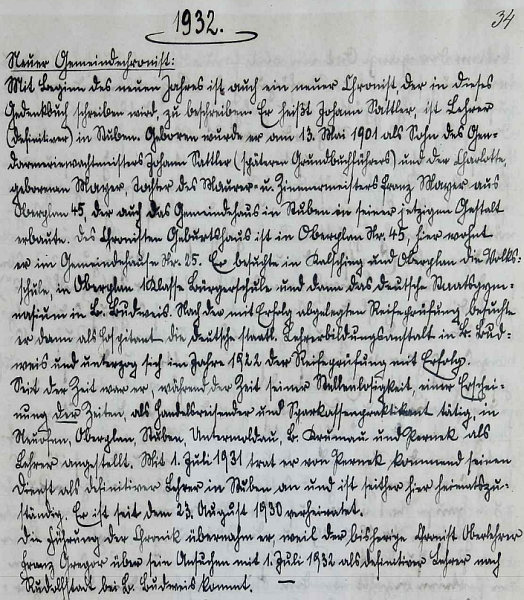 1932.
34
Neuer Gemeindechronist:
Mit Beginn des neuen Jahres ist auch ein neuer Chronist der in dieses
Gedenkbuch schreiben wird, zu beschreiben. Er heißt Johann Sattler, ist Lehrer
(definitiver) in Stuben. Geboren wurde er am 13. Mai 1901 als Sohn des Gen-
darmeriewachtmeisters Johann Sattler (späteren Grundbuchführers) und der Charlotte,
geborenen Mayer, Tochter des Maurer- u. Zimmermeisters Franz Mayer aus
Oberplan 45, der auch das Gemeindehaus in Stuben in seiner jetzigen Gestalt
erbaute. Des Chronisten Geburtshaus ist in Oberplan Nr. 45, hier wohnt
er im Gemeindehause Nr. 25. Er besuchte in Kalsching und Oberplan die Volks-
schule, in Oberplan 1 Klasse Bürgerschule und dann das deutsche Staatsgym-
nasium in B. Budweis. Nach der mit Erfolg abgelegten Reifeprüfung besuchte
er dann als Hospitant die deutsche staatl. Lehrerbildungsanstalt in B. Bud-
weis und unterzog sich im Jahre 1922 der Reifeprüfung mit Erfolg.
Seit der Zeit war er, während der Zeit seiner Stellenlosigkeit, einer Erschei-
nung der Zeiten, als Handelsreisender und Sparkassenpraktikant tätig, in
Neuofen, Oberplan, Stuben, Untermoldau, B. Krumau und Pernek als
Lehrer angestellt. Mit 1. Juli 1931 trat er von Pernek kommend seinen
Dienst als definitiver Lehrer in Stuben an und ist seither hier heimatszu-
ständig. Er ist seit dem 23. August 1930 verheiratet.
Die Führung der Chronik übernahm er, weil der bisherige Chronist Oberlehrer
Franz Gregor über sein Ansuchen mit 1. Juli 1932 als definitiver Lehrer nach
Rudolfstadt bei B. Budweis kommt. —